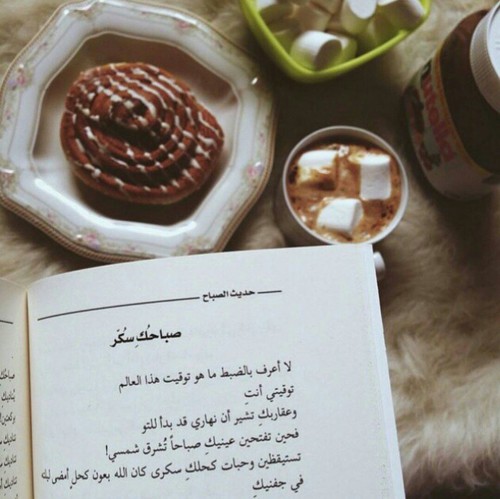 حديث الصباح
صباحُكِ سُكّر
لا أعرف بالضبط ما هو توقيت هذا العالم
توقيتي أنتِ
وعقاربكِ تشير أن نهاري قد بدأ للتو
فحين تفتحين عينيكِ صباحاً تُشرق شمسي!
تستيقظين وحبات كحلكِ سكرى كان الله بعون كحلٍ أمضى ليله
في جفنيكِ
nutella